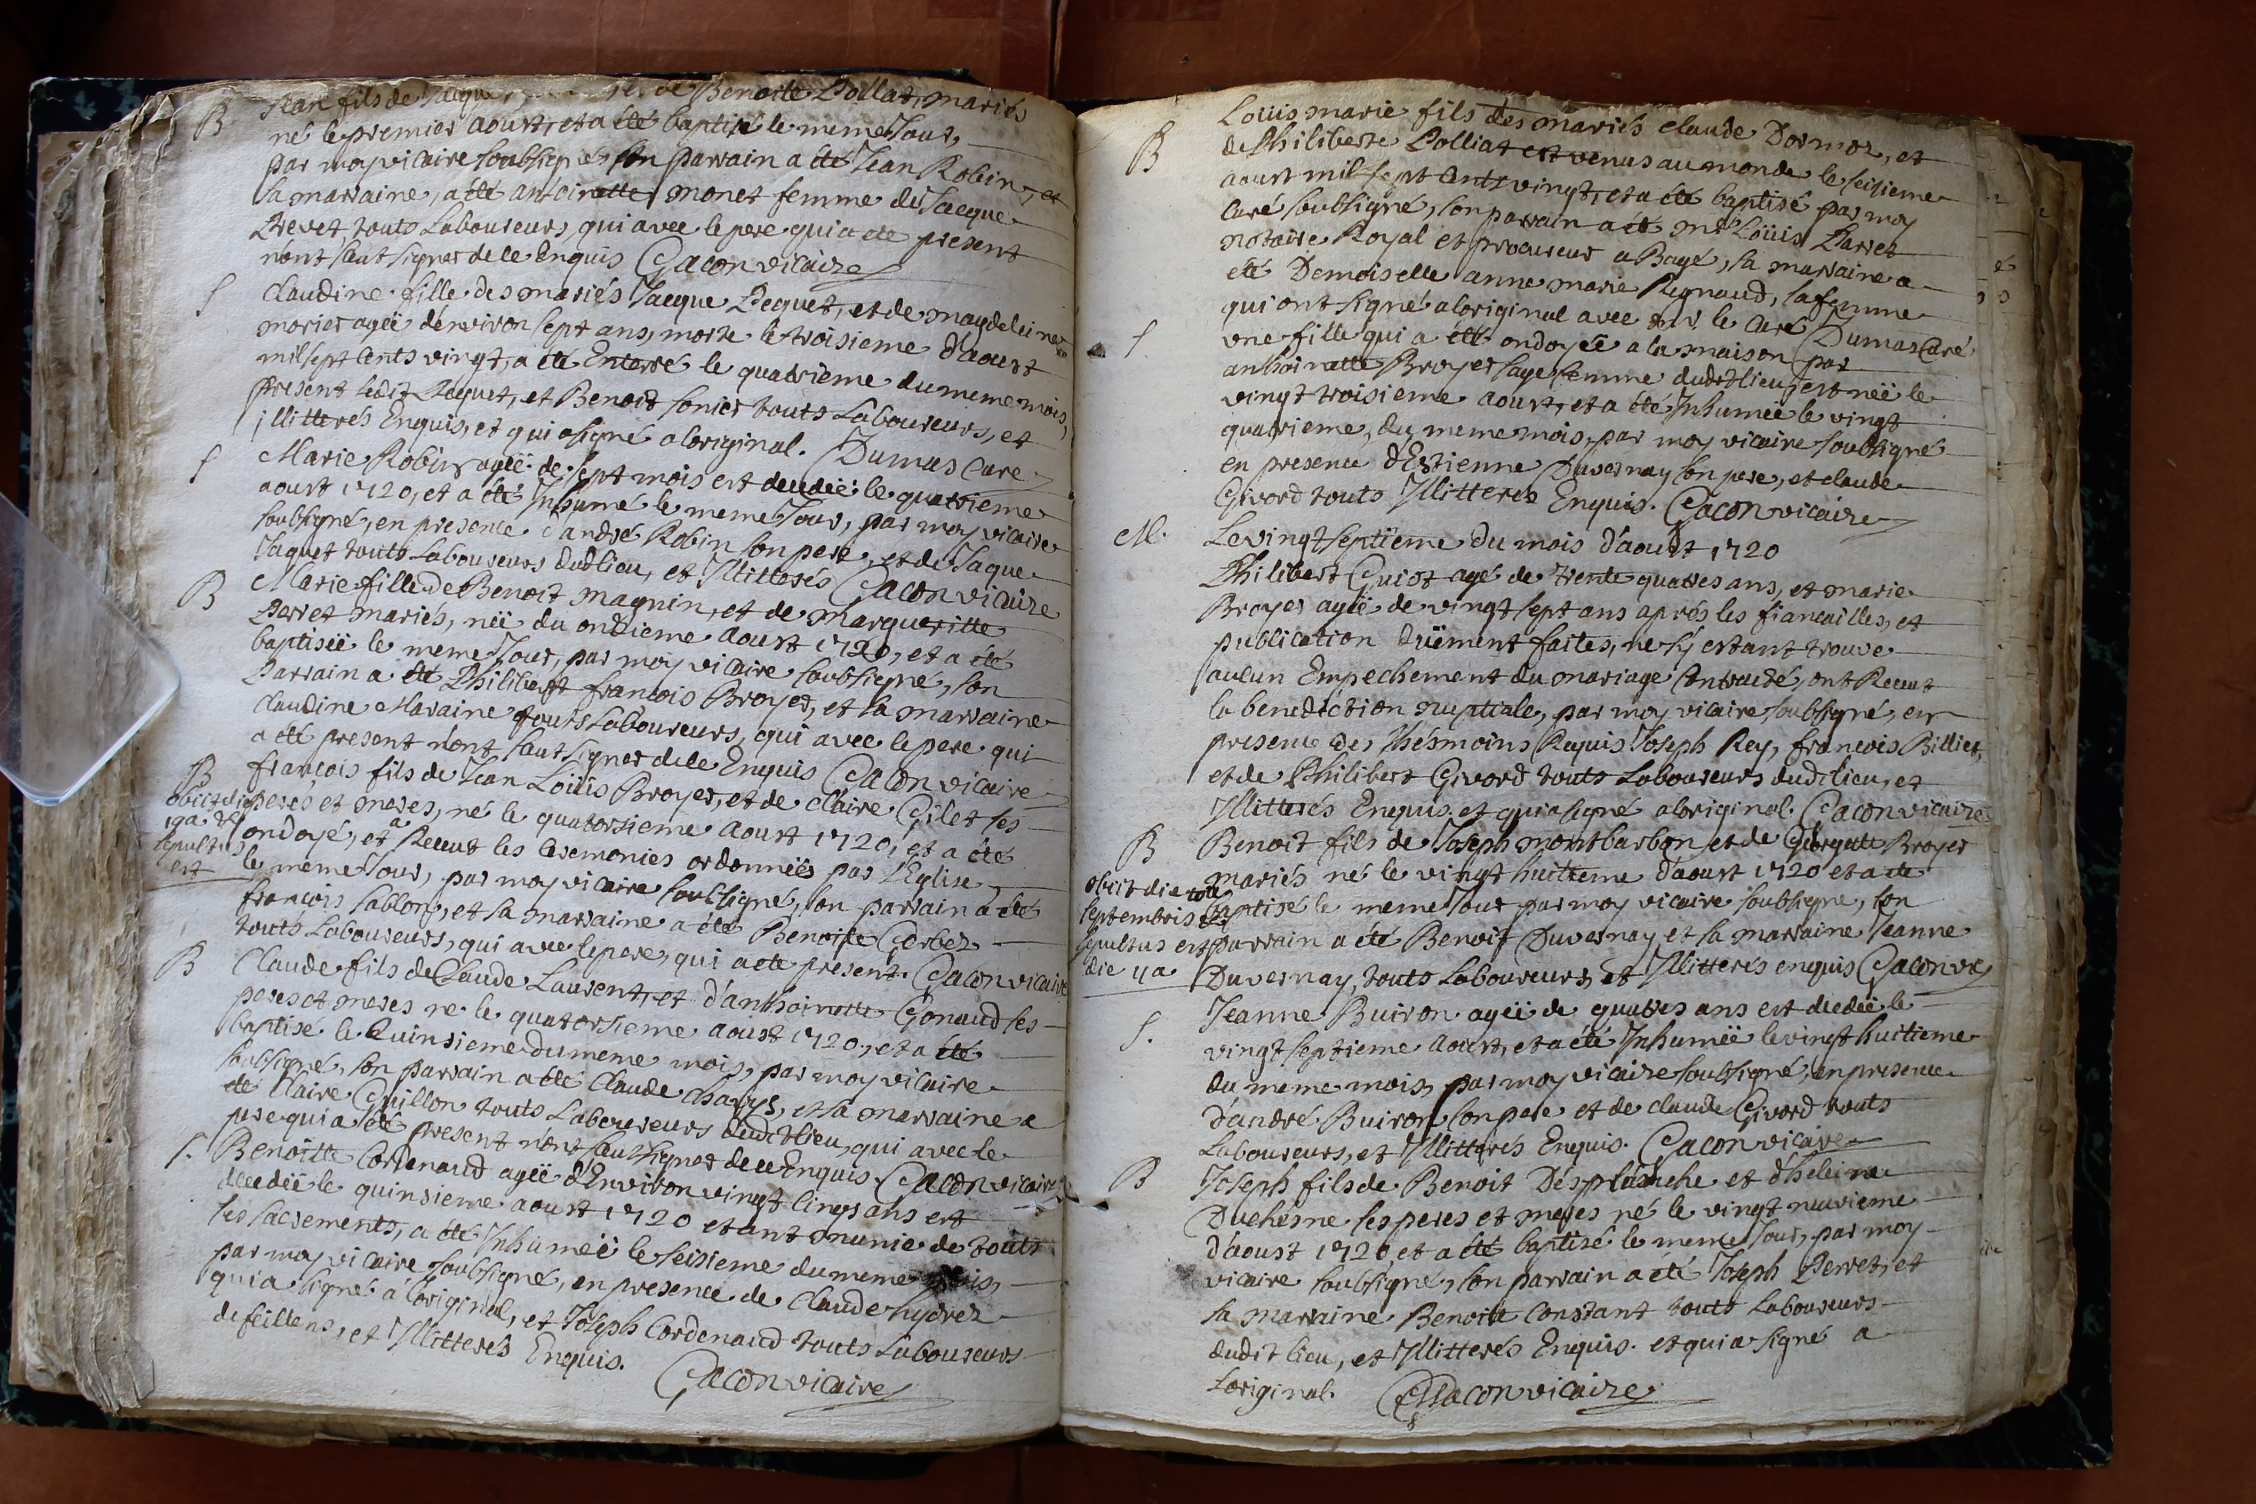 B Jean fils de Jacque et de Benoite Pollat, mariés
né le premier aoust, et a été baptisé le meme Jour,
par moy vicaire soubsigné son parrain a été Jean Robin, et
sa marraine, a été antoinette monet femme de Jacque
Prevet, touts Laboureurs, qui avec le pere qui a été present
n'ont sceut signer de ce Enquis Gacon vicaire
S Claudine fille des mariés Jacque Pecquet, et de magdeleine
morier ageë d'environ sept ans, morte le troisieme d'aoust
mil sept Cents vingt, a été Enterré le quatrieme du meme mois,
present ledit Pecquet, et Benoit sonier touts Laboureurs, et
illitterés Enquis, et qui a signé a loriginal. Dumas Curé
S Marie Robin ageë de sept mois est decedeë le quatrieme
aoust 1720, et a été Inhumé le meme Jour, par moy vicaire
soubsigné, en presence d'andré Robin son pere, et de Jaque
Jaquet touts Laboureurs dud. lieu, et Illitterés Gacon vicaire
B Marie fille de Benoit magnin, et de margueritte
Perret mariés, neë du onzieme aoust 1720, et a été
baptiseë le meme Jour, par moy vicaire soubsigné, son
Parrain a été Philibert francois Broyer, et sa marraine
Claudine Maraine touts Laboureurs, qui avec le pere qui
a été present n'ont sceut signer de ce Enquis Gacon vicaire
B francois fils de Jean Loüis Broyer, et de Claire Gilet ses
obiit die peres et meres, né le quatorsieme aoust 1720, et a été
19a 7bris ondoyé, et a Receut les Ceremonies ordonneës par L'Eglise
sepultus le meme Jour, par moy vicaire soubsigné, son parrain a été
est francois Sablon, et sa marraine a été Benoite Corbet
touts Laboureurs, qui avec le pere, qui a été present. Gacon vicaire
B Claude fils de Claude Laurent, et d'anthoinette Gonaud ses
peres et meres né le quatorsieme aoust 1720, et a été
baptisé le Quinsieme du meme mois, par moy vicaire
soubsigné, son parrain a été Claude Chanys, et sa marraine a
été Claire Guillon touts Laboureurs dudit lieu, qui avec le
pere qui a été present n'ont sceut signer de ce Enquis. Gacon vicaire
S. Benoitte Cordenaud ageë d'Environ vingt Cinqs ans est
decedeë le quinsieme aoust 1720 etant munie de touts
les sacrements, a été Inhumeë le seisieme du meme mois,
par moy vicaire soubsigné, en presence de Claude hydrez
qui a signé a loriginal, et Joseph Cordenaud touts Laboureurs
de feillens, et Illitterés Enquis.
Gacon vicaire
B Loüis marie fils des mariés Claude Dormoz, et
de Philiberte Polliat est venus au monde le seisieme
aoust mil sept Cents vingt, et a été baptisé par moy
Curé soubsigné, son parrain a été mr Loüis Parret
notaire Royal et procureur a Bagé, sa marraine a
été Demoiselle anne marie Regnaud, sa femme
qui ont signé a loriginal avec mr le Curé Dumas Curé
S. une fille qui a été ondoyeë a la maison par
anthoinette Broyer sage femme dudit lieu, est neë le
vingt troisieme aoust, et a été Inhumeë le vingt
quatrieme, du meme mois, par moy vicaire soubsigné
en presence d'Estienne Duvernay son pere, et claude
Givord touts Illitterés Enquis. Gacon vicaire
M. Le vingt septieme du mois d'aoust 1720
Philibert Guiot agé de trente quatres ans, et marie
Broyer ageë de vingt sept ans aprés les fiancailles, et
publication duëment faites, ne s'y estant trouvé
aucun Empechement du mariage Contracté, ont Receut
la benediction nuptiale, par moy vicaire soubsigné, en
presence des thésmoins Requis Joseph Rey, francois Billiet,
et de Philibert Givord touts Laboureurs dud. lieu, et
Illitterés Enquis, et qui a signé a loriginal. Gacon vicaire
B Benoit fils de Joseph montbarbon et de Georgette Broyer
mariés né le vingt huitieme d'aoust 1720 et a été
obiit die baptisé le meme Jour par moy vicaire soubsigné, son
septembris
sepultus est parrain a été Benoit Duvernay et sa marraine Jeanne
die 4a Duvernay, touts Laboureurs, et Illitterés enquis Gacon vic
S. Jeanne Buiron ageë de quatres ans est decedeë le
vingt septieme aoust, et a été Inhumeë le vingt huitieme
du meme mois, par moy vicaire soubsigné, en presence
d'andré Buiron, son pere et de claude Givord touts
Laboureurs, et Illitterés Enquis. Gacon vicaire
B Joseph fils de Benoit Desplanche et d'heleine
Duchesne ses peres et meres né le vingt neuvieme
d'aoust 1720 et a été baptisé le meme Jour, par moy
vicaire soubsigné, son parrain a été Joseph Perret, et
sa marraine Benoite Constant touts Laboureurs
dudit lieu, et Illitterés Enquis. et qui a signé a
Loriginal. Gacon vicaire